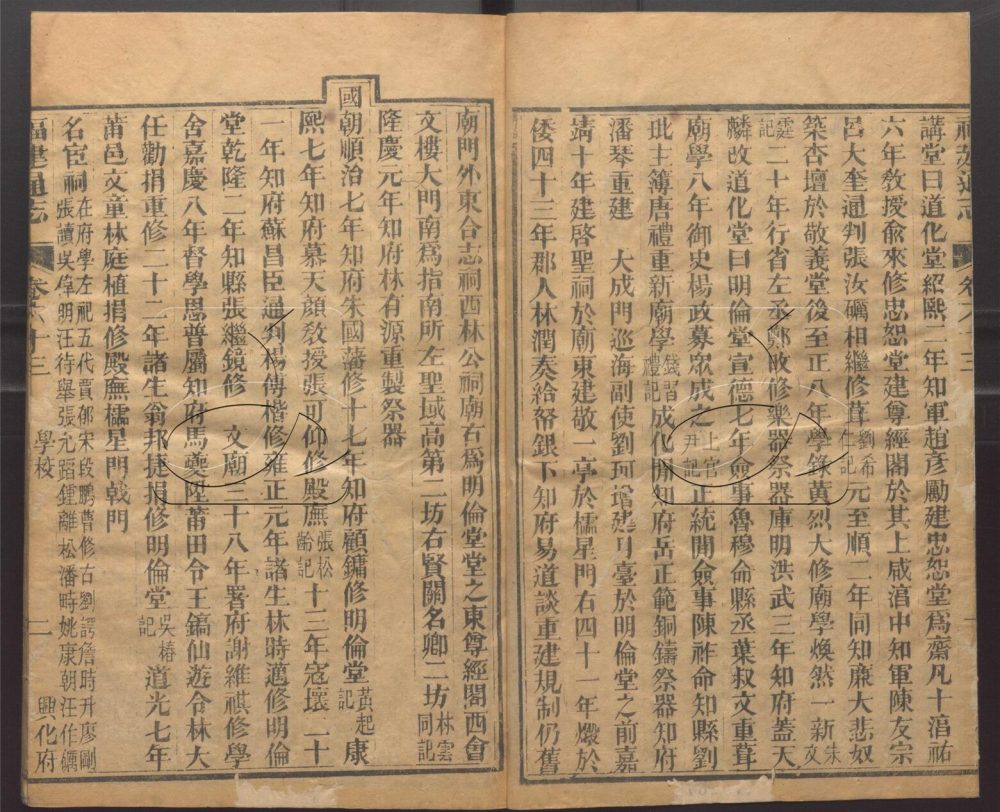 講堂曰道化堂紹熙二年知軍趙彥勵建忠恕堂爲齋凡十淳祐
六年敎授兪來修忠恕堂建尊經閣於其上咸淳中知軍陳友宗
呂大奎通判張汝礪相繼修葺劉希仁記元至順二年同知廉大悲奴
築杏壇於敬義堂後至正八年學錄黃烈大修廟學煥然一新朱文霆記
二十年行省左丞鄭旼修樂器祭器庫明洪武三年知府蓋天
麟改道化堂曰明倫堂宣德七年僉事魯穆命縣丞葉叔文重葺
廟學八年御史楊政募眾成之上官尹記正統間僉事陳祚命知縣劉
玭主簿唐禮重新廟學錢習禮記成化間知府岳正範銅鑄祭器知府
潘琴重建 大成門巡海副使劉珂增建月臺於明倫堂之前嘉
靖十年建啓聖祠於廟東建敬一亭於櫺星門右四十一年燬於
倭四十三年郡人林潤奏給帑銀下知府易道談重建規制仍舊
廟門外東合志祠西林公祠廟右爲明倫堂堂之東尊經閣西會
文樓大門南爲指南所左聖域高第二坊右賢關名卿二坊林雲同記
隆慶元年知府林有源重製祭器
國朝順治七年知府朱國藩修十七年知府顧鏞修明倫堂黃起記康
熙七年知府慕天顏敎授張可仰修殿廡張松齡記十三年寇壞二十
一年知府蘇昌臣通判楊傳楷修雍正元年諸生林時邁修明倫
堂乾隆二年知縣張繼鏡修 文廟三十八年署府謝維祺修學
舍嘉慶八年督學恩普屬知府馬夔陞莆田令王鎬仙遊令林大
任勸捐重修二十二年諸生翁邦捷捐修明倫堂吳椿記 道光七年
莆邑文童林庭植捐修殿廡櫺星門戟門
名宦祠在府學左祀五代賈郁宋段鵬曹修古劉諤詹時升廖剛
張讀吳偉明汪待舉張元蹈鍾離松潘時姚康朝汪作礪
福建通志 卷六十三 學校 二 興化府